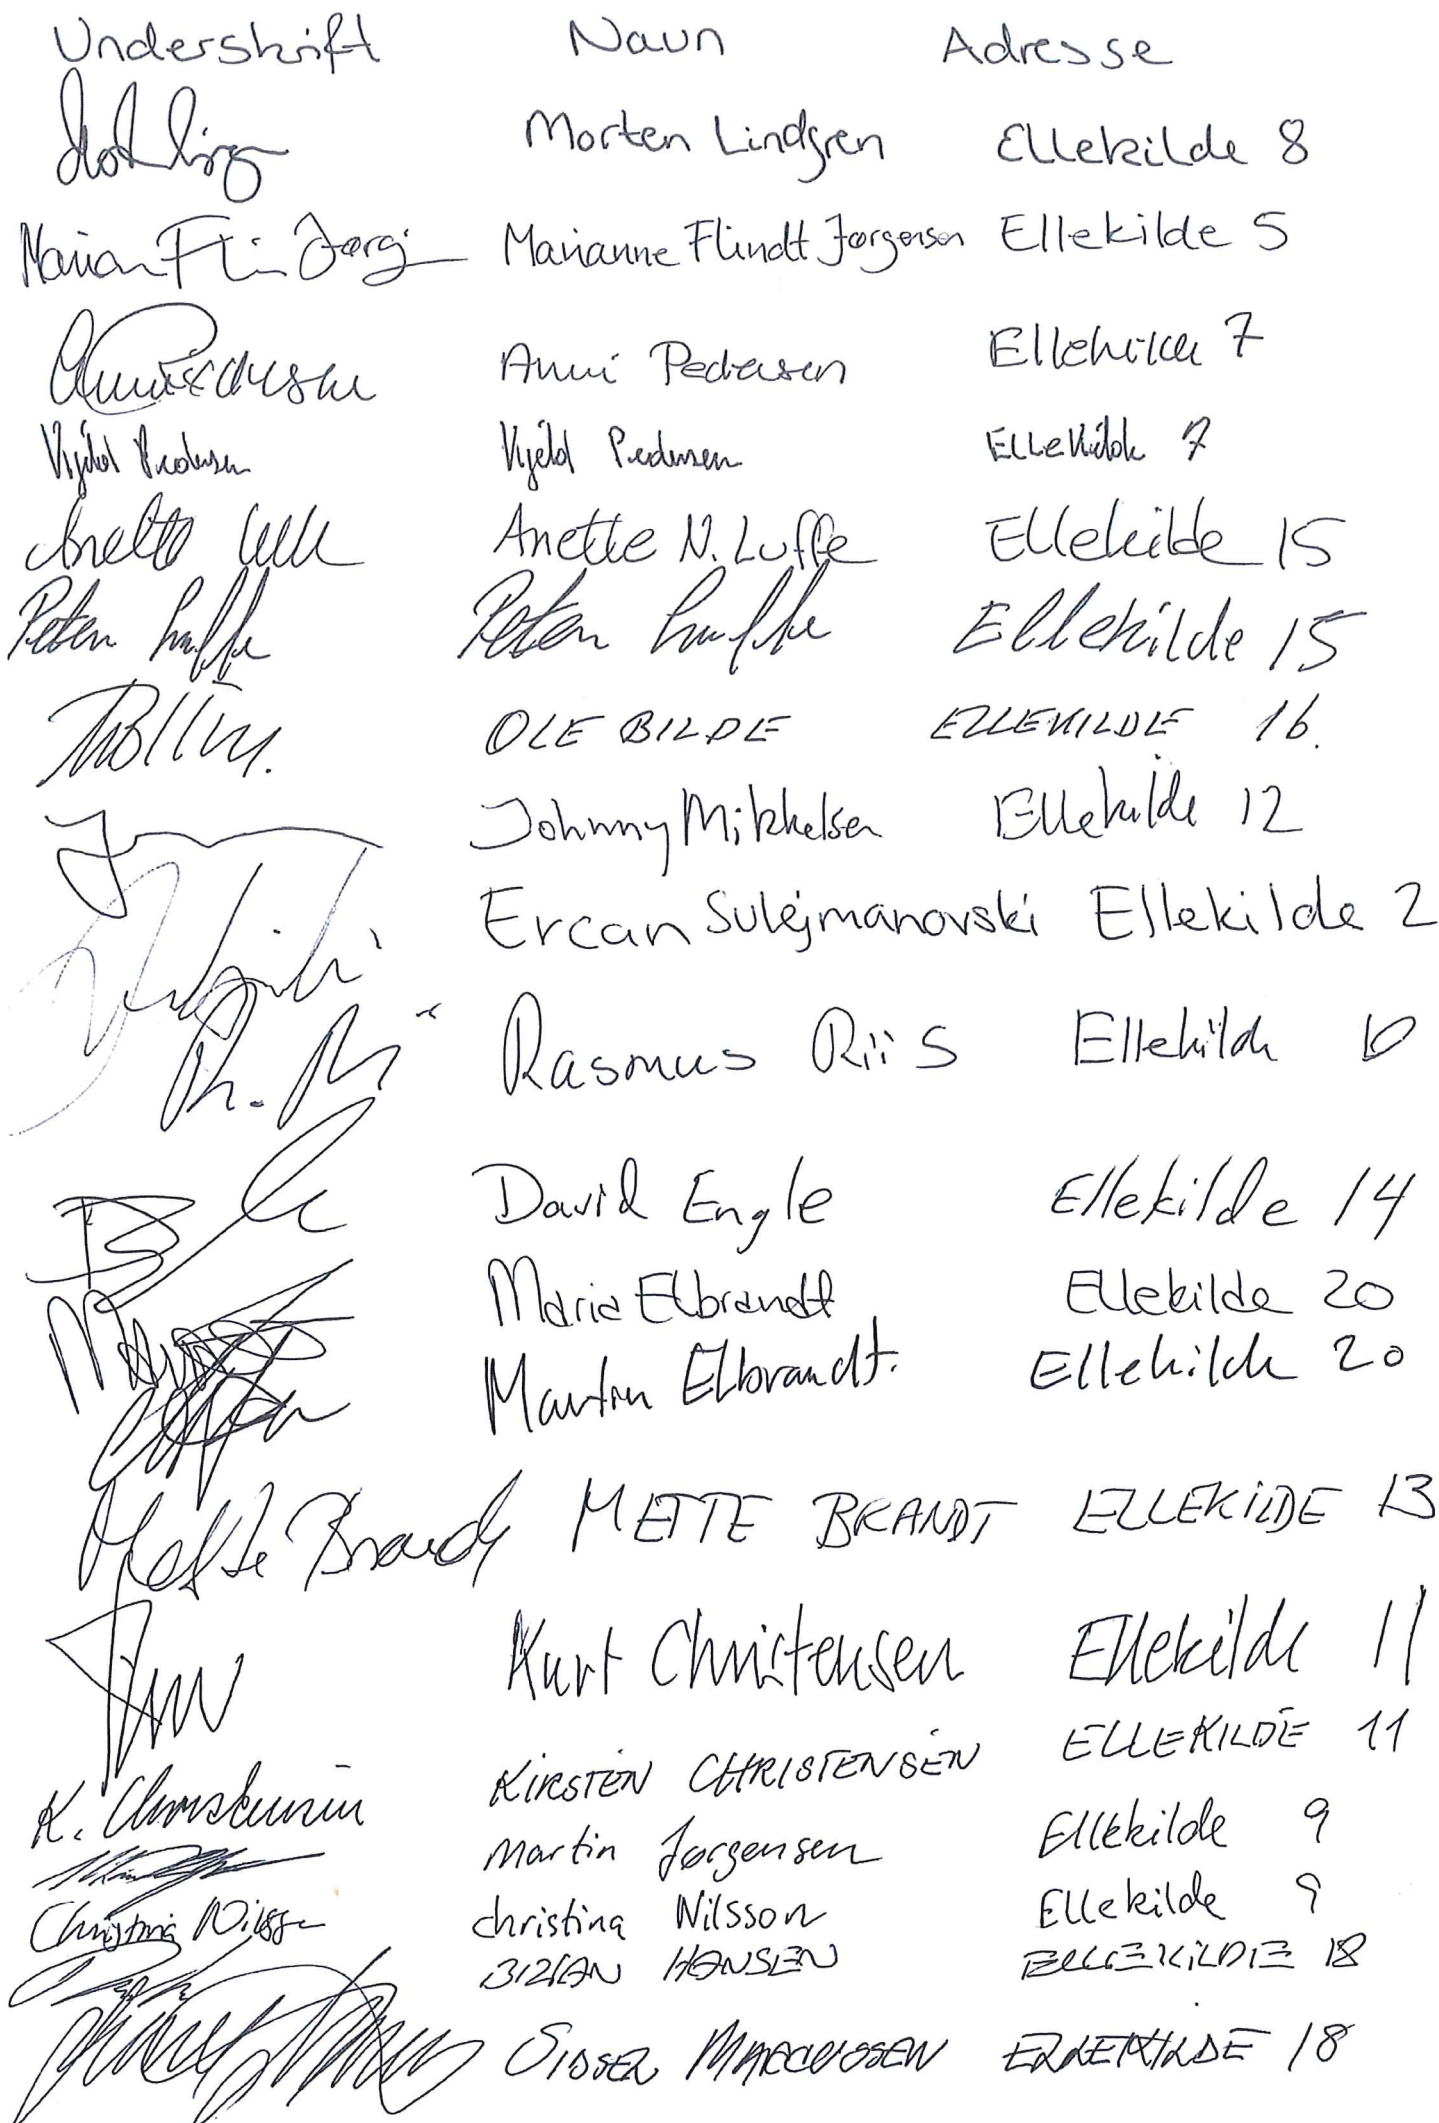 Underskrift Navn Adresse
Morten Lindgren Ellekilde 8
Marianne Flindt Jørgensen Ellekilde 5
Anni Pedersen Ellekilde 7
Kjeld Pedersen Kjeld Pedersen Ellekilde 7
Anette Anette N. Luffe Ellekilde 15
Peter Luffe Peter Luffe Ellekilde 15
OLE BILDE ELLEKILDE 16.
Johnny Mikkelsen Ellekilde 12
Ercan Sulejmanovski Ellekilde 2
Rasmus Riis Ellekilde 10
David Engle Ellekilde 14
Maria Elbrandt Ellekilde 20
Martin Elbrandt. Ellekilde 20
Mette Brandt METTE BRANDT ELLEKILDE 13
Kurt Christensen Ellekilde 11
K. Christensen KIRSTEN CHRISTENSEN ELLEKILDE 11
Martin Jørgensen Ellekilde 9
Christina Nilsson christina Nilsson Ellekilde 9
BRIAN HANSEN ELLEKILDE 18
MARCUSSEN ELLEKILDE 18